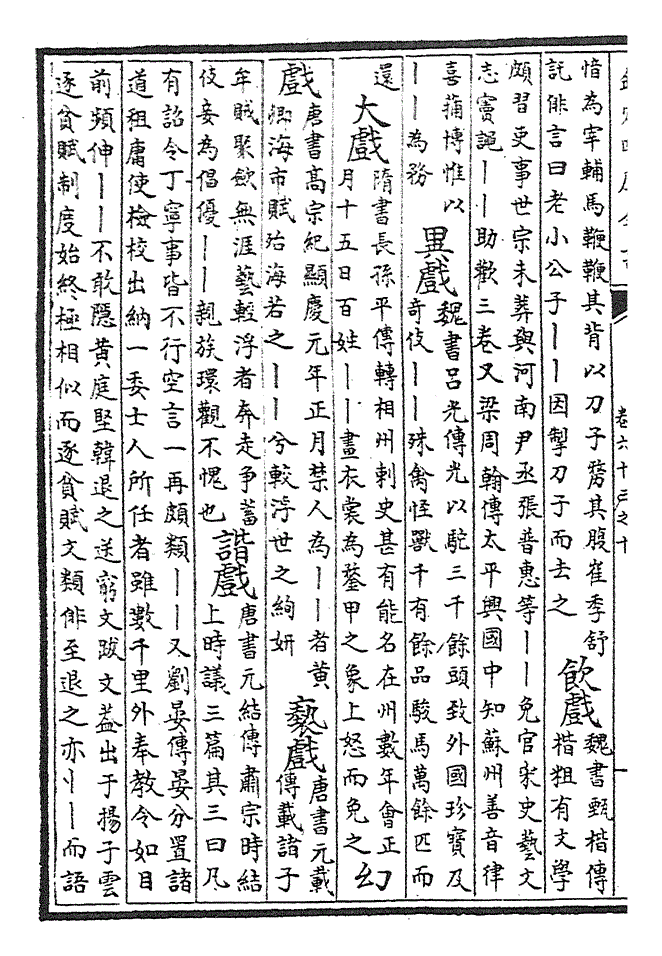 愔為宰輔馬鞭鞭其背以刀子剺其腹崔季舒
託俳言曰老小公子丨丨因掣刀子而去之
飲戲
魏書甄楷傳
楷粗有文學
頗習吏事世宗未葬與河南尹丞張普惠等丨丨免官宋史藝文
志竇譑丨丨助歡三卷又梁周翰傳太平興國中知蘇州善音律
喜蒱博惟以
丨丨為務
異戲
魏書呂光傳光以駝三千餘頭致外國珍寶及
奇伎丨丨殊禽怪獸千有餘品駿馬萬餘匹而
還
大戲
隋書長孫平傳轉相州刺史甚有能名在州數年會正
月十五日百姓丨丨畫衣裳為鍪甲之象上怒而免之
幻
戲
唐書高宗紀顯慶元年正月禁人為丨丨者黃
卿海市賦詒海若之丨丨兮較浮世之絢妍
褻戲
唐書元載
傳載諸子
牟賊聚斂無涯藝輕浮者奔走爭蓄
伎妾為倡優丨丨親族環觀不愧也
諧戲
唐書元結傳肅宗時結
上時議三篇其三曰凡
有詔令丁寧事皆不行空言一再頗類丨丨又劉晏傳晏分置諸
道租庸使檢校出納一委士人所任者雖數千里外奉教令如目
前頻伸丨丨不敢隱黃庭堅韓退之送窮文跋文蓋出于揚子雲
逐貧賦制度始終極相似而逐貧賦文類俳至退之亦丨丨而語
卷六十三之十